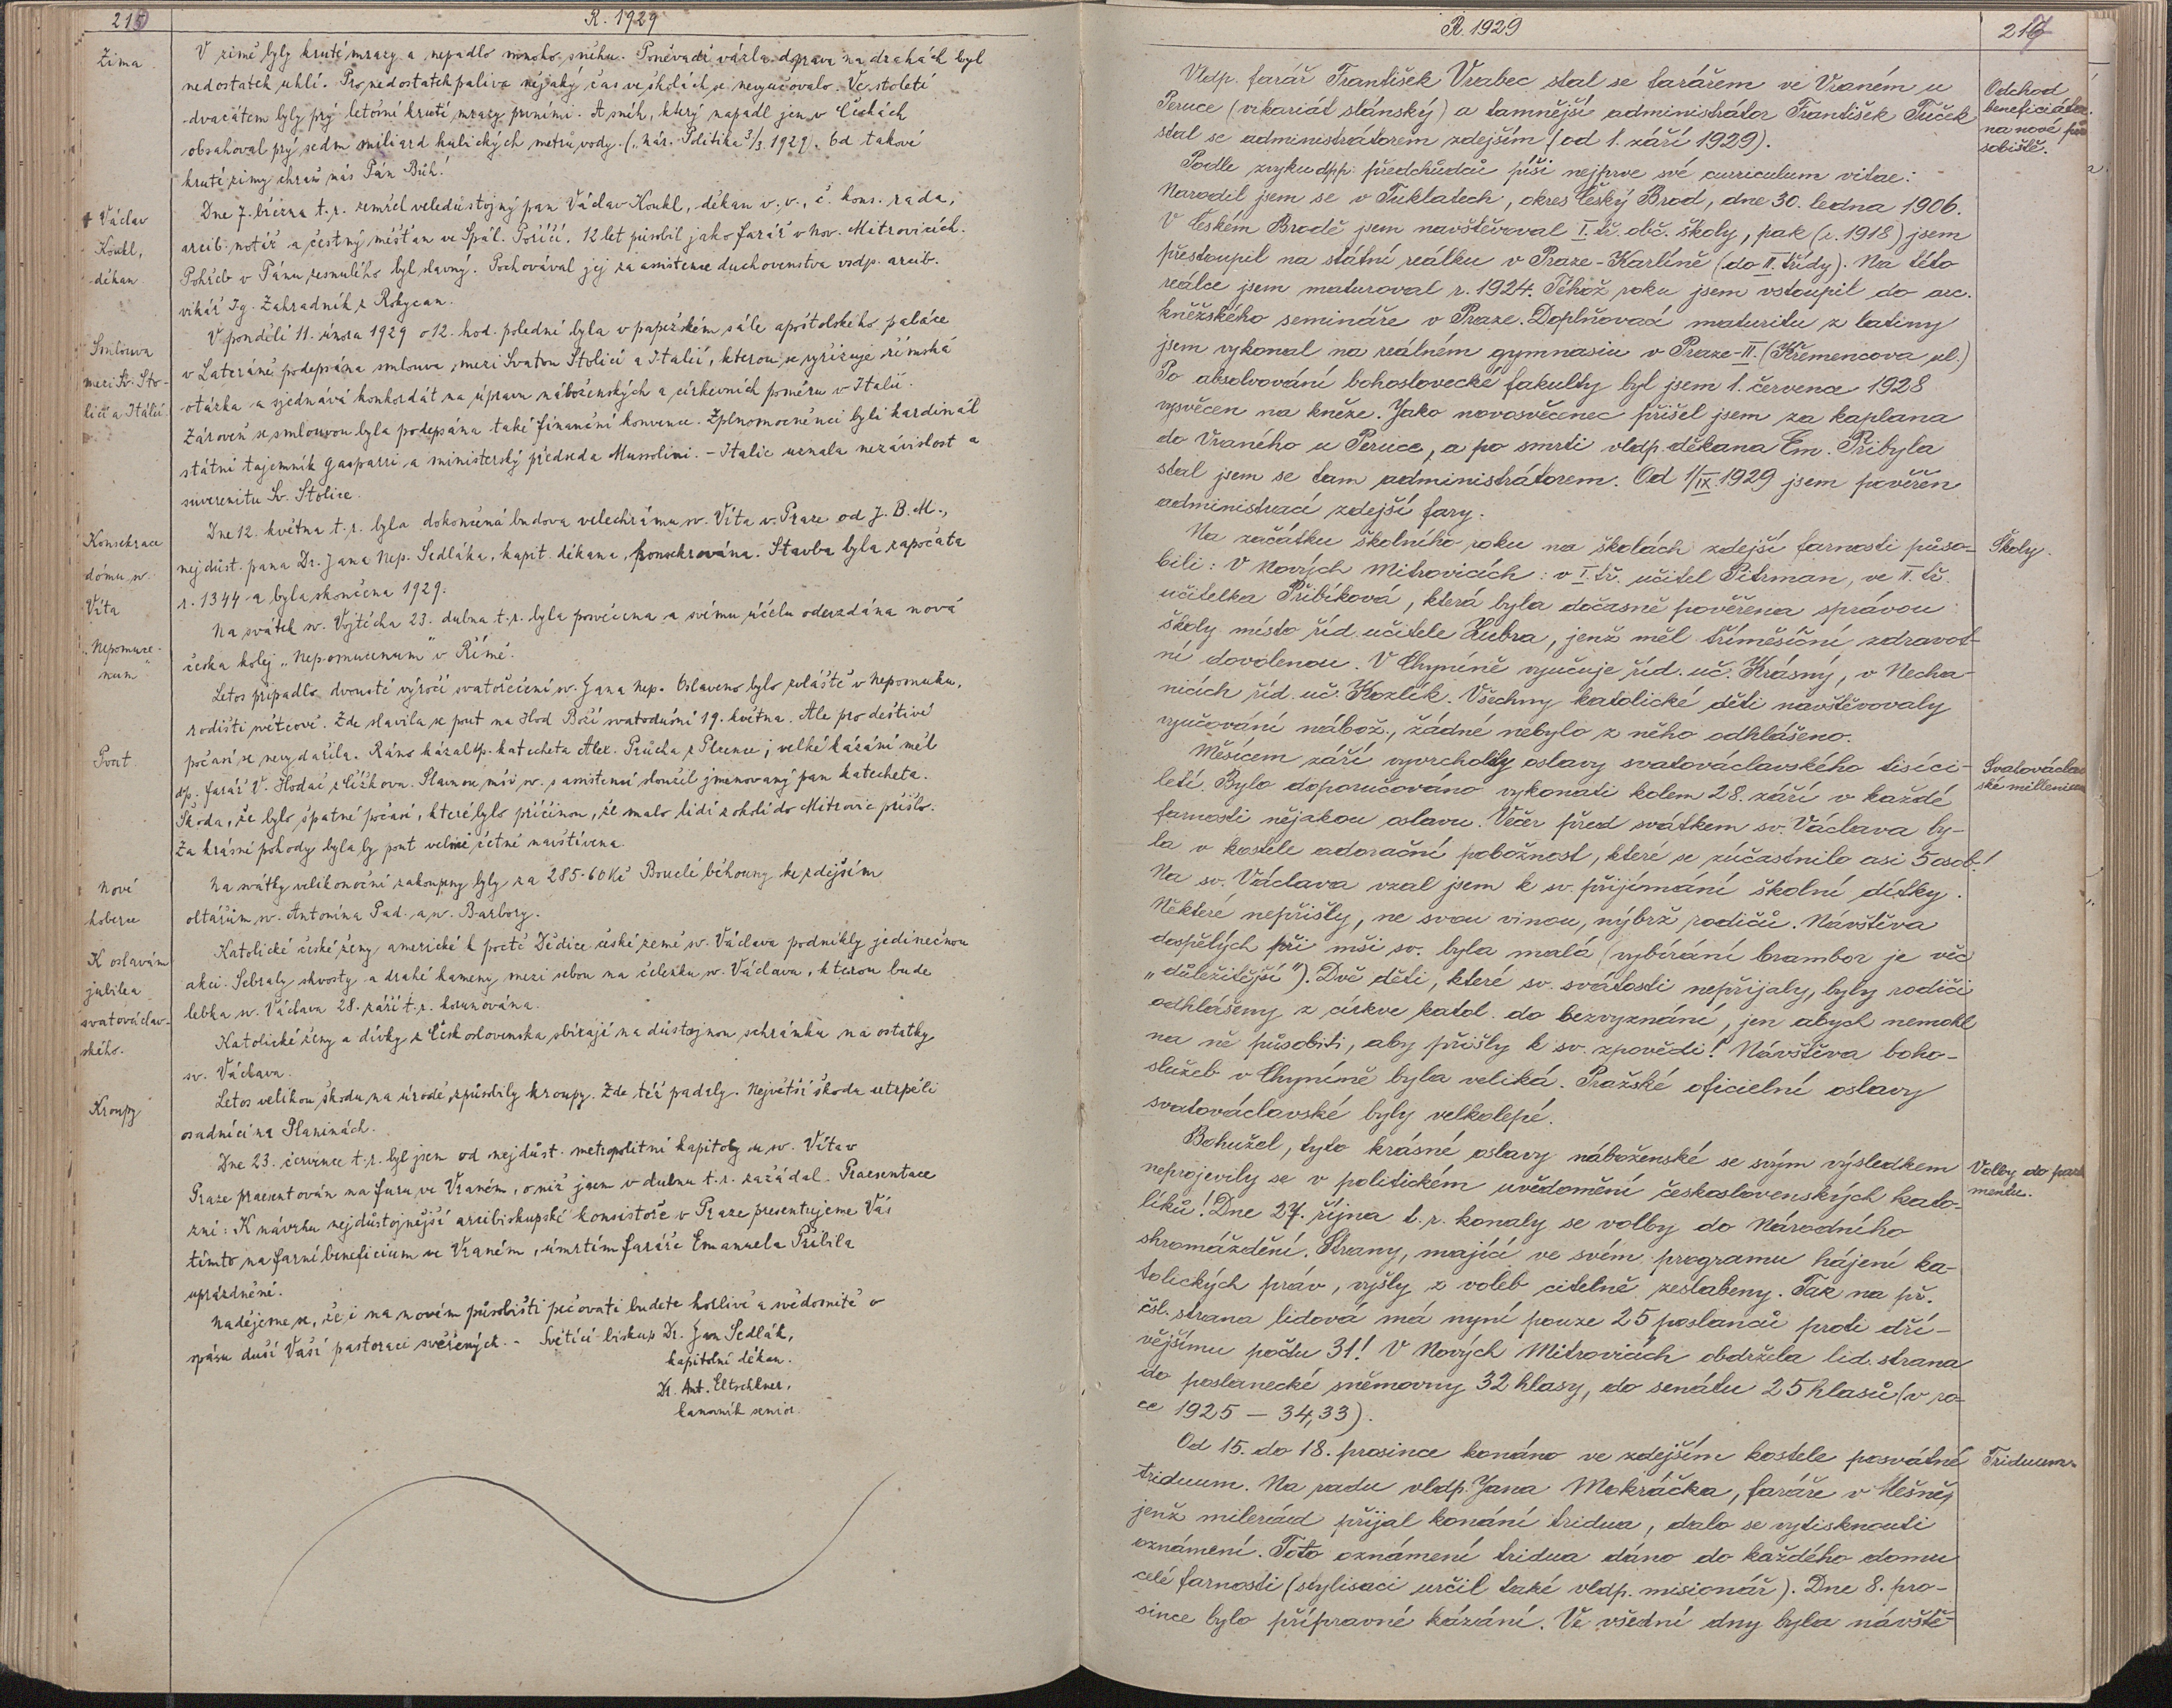 215
R. 1929
Zima
V zimě byly kruté mrazy a nepadlo mnoho sněhu. Poněvadž vázla doprava na drahách byl
nedostatek uhlí. Pro nedostatek paliva nějaký čas ve školách se nevyučovalo. Ve století
dvacátém byly prý letošní kruté mrazy prvními. A sníh, který napadl jen v Čechách
obsahoval prý sedm miliard kubických metrů vody. („Nár. Politika" 3/3 1929). Od takové
kruté zimy chraň nás Pán Bůh!
† Václav
Koukl,
děkan
Dne 7. března t.r. zemřel veledůstojný pan Václav Koukl, děkan v. v., č. kons. rada,
arcib. notář a čestný měšťan ve Spál. Poříčí. 12 let působil jako farář v Nov. Mitrovicích.
Pohřeb v Pánu zesnulého byl slavný. Pochovával jej za assistence duchovenstva vsdp. arcib.
vikář Ig. Zahradník z Rokycan.
Smlouva
mezi Sv. Sto-
licí a Itálií
V pondělí 11. února 1929 o 12. hod. polední byla v papežském sále apoštolského paláce
v Lateráně podepsána smlouva mezi Svatou Stolicí a Italií, kterou se vyřizuje římská
otázka a sjednává konkordát za úpravu náboženských a církevních poměru v Italii.
Zároveň se smlouvou byla podepsána také finanční konvence. Zplnomocněnci byli kardinál
státní tajemník Gasparri a ministerský předseda Mussolini. – Italie uznala nezávislost a
suverenitu Sv. Stolice.
Konsekrace
dómu sv.
Víta
Dne 12. května t.r. byla dokončená budova velechrámu sv. Víta v Praze od J. B. M.,
nejdůst. pana Dr. Jana Nep. Sedláka, kapit. děkana, konsekrována. Stavba byla započata
r. 1344 a byla skončena 1929.
„Nepomuce-
num"
Na svátek sv. Vojtěcha 23. dubna t.r. byla posvěcena a svému účelu odevzdána nová
česka kolej „Nepomucenum" v Římě.
Letos připadlo dvousté výročí svatořečení sv. Jana Nep. Oslaveno bylo zvláště v Nepomuku,
Pout
rodišti světcově. Zde slavila se pout na Hod Boží svatodušní 19. května. Ale pro deštivé
počasí se nevydařila. Ráno kázal dp. katecheta Alex. Průcha z Plzence; velké kázání měl
dp. farář V. Hodač z Čížkova. Slavnou mši sv. s assistencí sloužil jmenovaný pan katecheta.
Škoda, že bylo špatné počasí, které bylo příčinou, že malo lidí z okolí do Mitrovic přišlo.
Za krásné pohody byla by pout velmi četně navštívena.
Nové
koberce
Na svátky velikonoční zakoupeny byly za 285·60 Kč Bouclé běhouny ke zdejším
oltářům sv. Antonína Pad. a sv. Barbory.
K oslavám
jubilea
svatováclav-
ského.
Katolické české ženy americké k poctě Dědice české země sv. Václava podnikly jedinečnou
akci. Sebraly skvosty a drahé kameny mezi sebou na čelenku sv. Václava, kterou bude
lebka sv. Václava 28. září t.r. korunována.
Katolické ženy a dívky z Československa sbírají na důstojnou schránku na ostatky
sv. Václava.
Kroupy
Letos velikou škodu na úrodě způsobily kroupy. Zde též padaly. Největší škodu utrpěli
osadníci na Planinách.
Dne 23. července t.r. byl jsem od nejdůst. metropolitní kapitoly u sv. Víta v
Praze praesentován na faru ve Vraném, o niž jsem v dubnu t.r. zažádal. Praesentace
zní: K návrhu nejdůstojnější arcibiskupské konsistoře v Praze presentujeme Vás
tímto na farní beneficium ve Vraném, úmrtím faráře Emanuela Přibila
uprázdněné.
Nadějeme se, že i na novém působišti pečovati budete horlivě a svědomitě o
spásu duší Vaší pastoraci svěřených. – Světící biskup Dr. Jan Sedlák,
kapitolní děkan.
Dr. Ant. Eltschkner,
kanovník senior.
R. 1929
217
Odchod
beneficiáta
na nové pů-
sobiště.
Vldp. farář František Vrabec stal se farářem ve Vraném u
Peruce (vikariát slánský) a tamnější administrátor František Tuček
stal se administrátorem zdejším (od 1. září 1929).
Podle zvyku dpp. předchůdců píši nejprve své curriculum vitae:
Narodil jsem se v Tuklatech, okres Český Brod, dne 30. ledna 1906.
V Českém Brodě jsem navštěvoval I. tř. obč. školy, pak (r. 1918) jsem
přestoupil na státní reálku v Praze-Karlíně (do II. třídy). Na této
reálce jsem maturoval r. 1924. Téhož roku jsem vstoupil do arc.
kněžského semináře v Praze. Doplňovací maturitu z latiny
jsem vykonal na reálném gymnasiu v Praze-II. (Křemencova ul.)
Po absolvování bohoslovecké fakulty byl jsem 1. července 1928
vysvěcen na kněze. Jako novosvěcenec přišel jsem za kaplana
do Vraného u Peruce, a po smrti vldp. děkana Em. Přibyla
stal jsem se tam administrátorem. Od 1/IX 1929 jsem pověřen
administrací zdejší fary.
Školy.
Na začátku školního roku na školách zdejší farnosti půso-
bili: V Nových Mitrovicích: v I. tř. učitel Pitrman, ve II. tř.
učitelka Přibíková, která byla dočasně pověřena správou
školy místo říd. učitele Zubra, jenž měl tříměsíční zdravot-
ní dovolenou. V Chyníně vyučuje říd. uč. Krásný, v Necha-
nicích říd. uč. Kozlík. Všechny katolické děti navštěvovaly
vyučování nábož., žádné nebylo z něho odhlášeno.
Svatováclav
ské millenium
Měsícem září vyvrcholily oslavy svatováclavského tisíci-
letí. Bylo doporučováno vykonati kolem 28. září v každé
farnosti nějakou oslavu. Večer před svátkem sv. Václava by-
la v kostele adorační pobožnost, které se zúčastnilo asi 5 osob!
Na sv. Václava vzal jsem k sv. přijímání školní dítky.
Některé nepřišly, ne svou vinou, nýbrž rodičů. Návštěva
dospělých při mši sv. byla malá (vybírání brambor je věc
„důležitější"). Dvě děti, které sv. svátosti nepřijaly, byly rodiči
odhlášeny z církve katol. do bezvyznání, jen abych nemohl
na ně působiti, aby přišly k sv. zpovědi! Návštěva boho-
služeb v Chyníně byla veliká. Pražské oficielní oslavy
svatováclavské byly velkolepé.
Volby do parla
mentu.
Bohužel, tyto krásné oslavy náboženské se svým výsledkem
neprojevily se v politickém uvědomění československých kato-
líků! Dne 27. října t. r. konaly se volby do Národního
shromáždění. Strany, mající ve svém programu hájení ka-
tolických práv, vyšly z voleb citelně zeslabeny. Tak na př.
čsl. strana lidová má nyní pouze 25 poslanců proti dří-
vějšímu počtu 31! V Nových Mitrovicích obdržela lid. strana
do poslanecké sněmovny 32 hlasy, do senátu 25 hlasů (v ro-
ce 1925 – 34,33).
Triduum.
Od 15. do 18. prosince konáno ve zdejším kostele posvátné
triduum. Na radu vldp. Jana Mokráčka, faráře v Měšně,
jenž milerád přijal konání tridua, dalo se vytisknouti
oznámení. Toto oznámení tridua dáno do každého domu
celé farnosti (stylisaci určil také vldp. misionář). Dne 8. pro-
since bylo přípravné kázání. Ve všední dny byla návště-